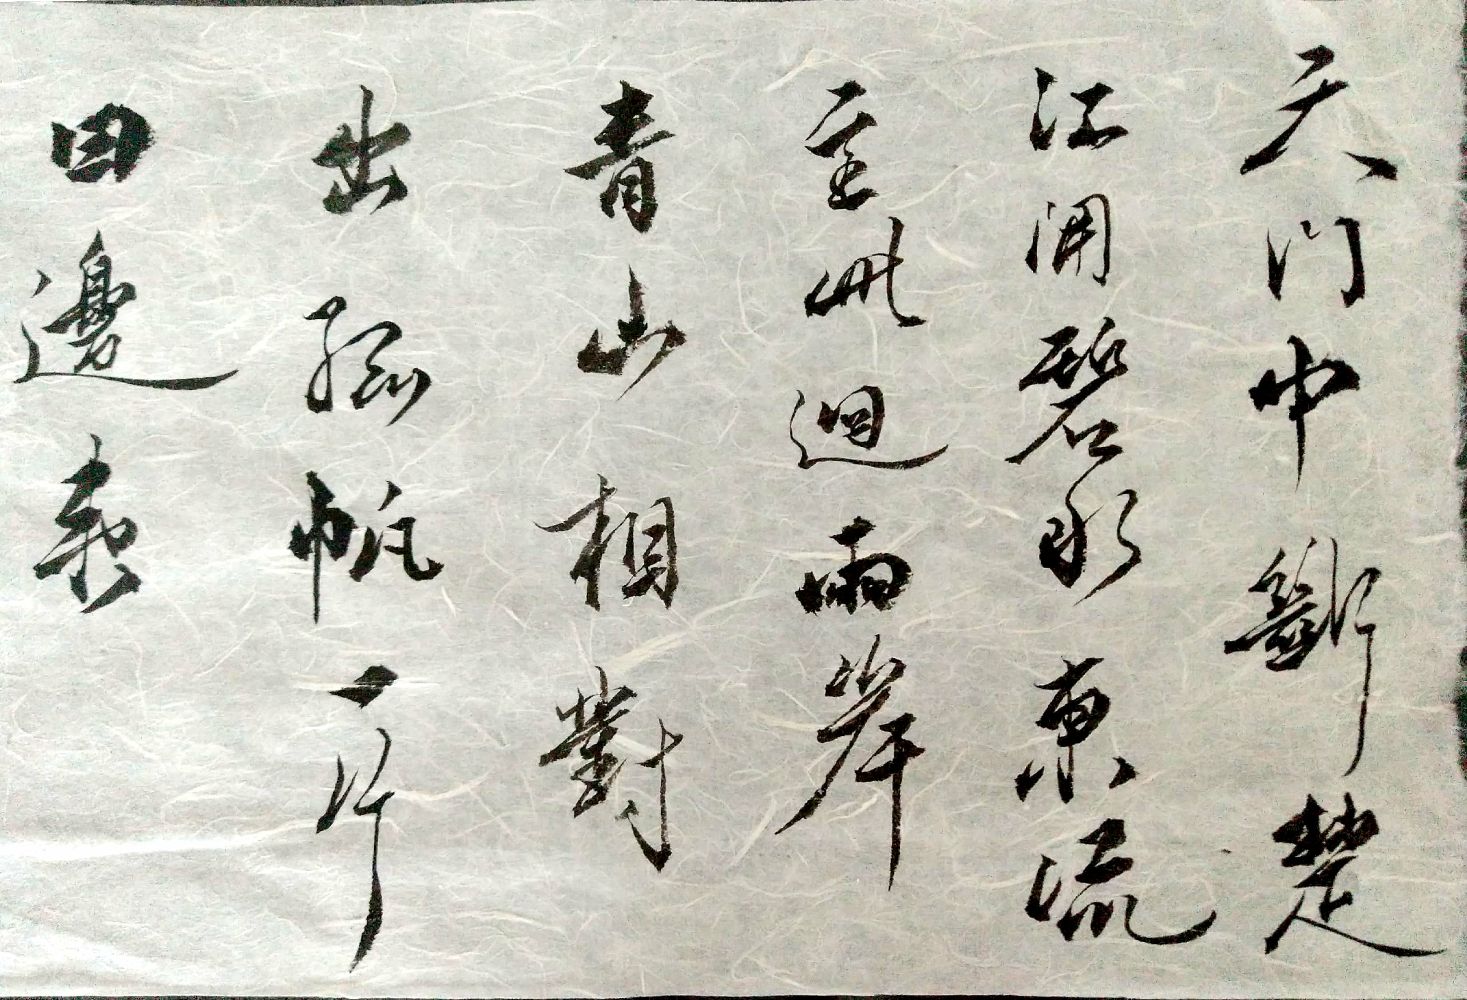 天門中斷楚
江開碧水東流
至此迴兩岸
青山相對
出孤帆一片
日邊來